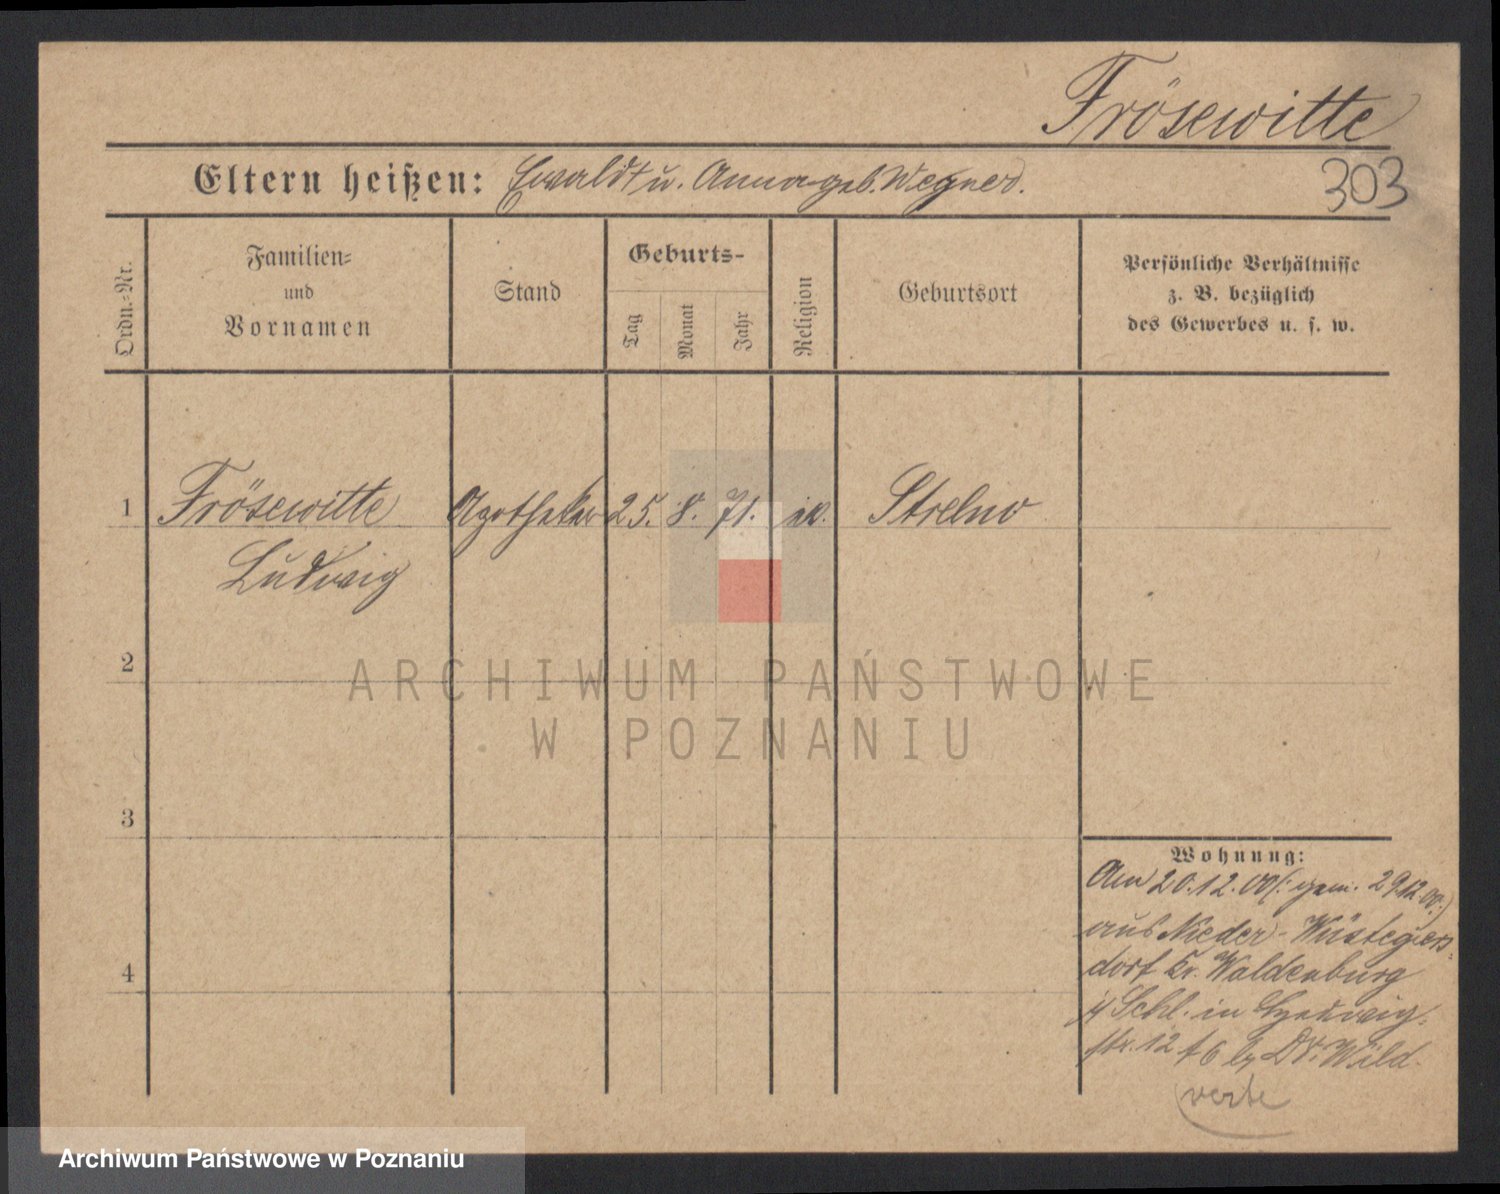 Frösewitte
Eltern heißen: Ewald u. Anna geb. Wegner.
303
Ordn.-Nr.
Familien-
und
Vornamen
Stand
Geburts-
Tag
Monat
Jahr
Religion
Geburtsort
Persönliche Verhältnisse
z. B. bezüglich
des Gewerbes u. s. w.
1 Frösewitte Apotheker 25. 8. 71. Strelno
Ludwig
2
3
4
Wohnung:
Am 20.12.00 (: gem. 29.12.00 :)
aus Nieder-Wüstegiers-
dorf Kr. Waldenburg
i/ Schl. in
str. 12 b/ Dr. Wild.
verte
ARCHIWUM PAŃSTWOWE
W POZNANIU
Archiwum Państwowe w Poznaniu